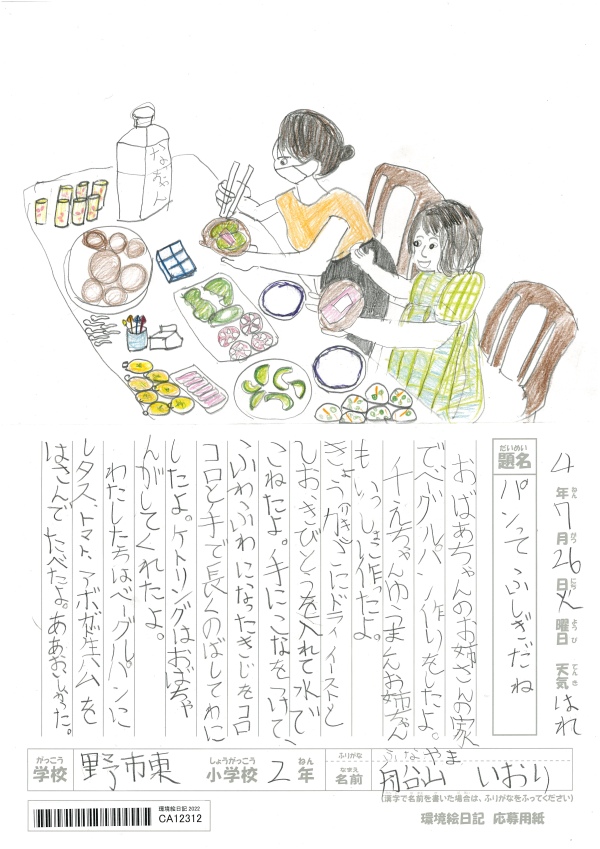 かなちゃん
4年7月26日火曜日 天気はれ
題名 パンってふしぎだね
おばあちゃんのお姉さんの家
でベーグルパン作りをしたよ。
千えちゃんゆうまんお姉ちゃん
もいっしょに作ったよ。
きょう力きこにドライイーストと
しおきびとうを入れて水で
こねたよ。手にこなをつけて、
ふわふわになったきじをコロ
コロと手で長くのばしてわに
したよ。ケトリングはおばちゃ
んがしてくれたよ。
わたしたちはベーグルパンに
レタス、トマト、アボガド生ハムを
はさんでたべたよ。ああおいしかった。
学校 野市東 小学校 2年 名前 舟谷山 いおり
ふりがな ふなやま
(漢字で名前を書いた場合は、ふりがなをふってください)
環境絵日記 2022
CA12312
環境絵日記 応募用紙